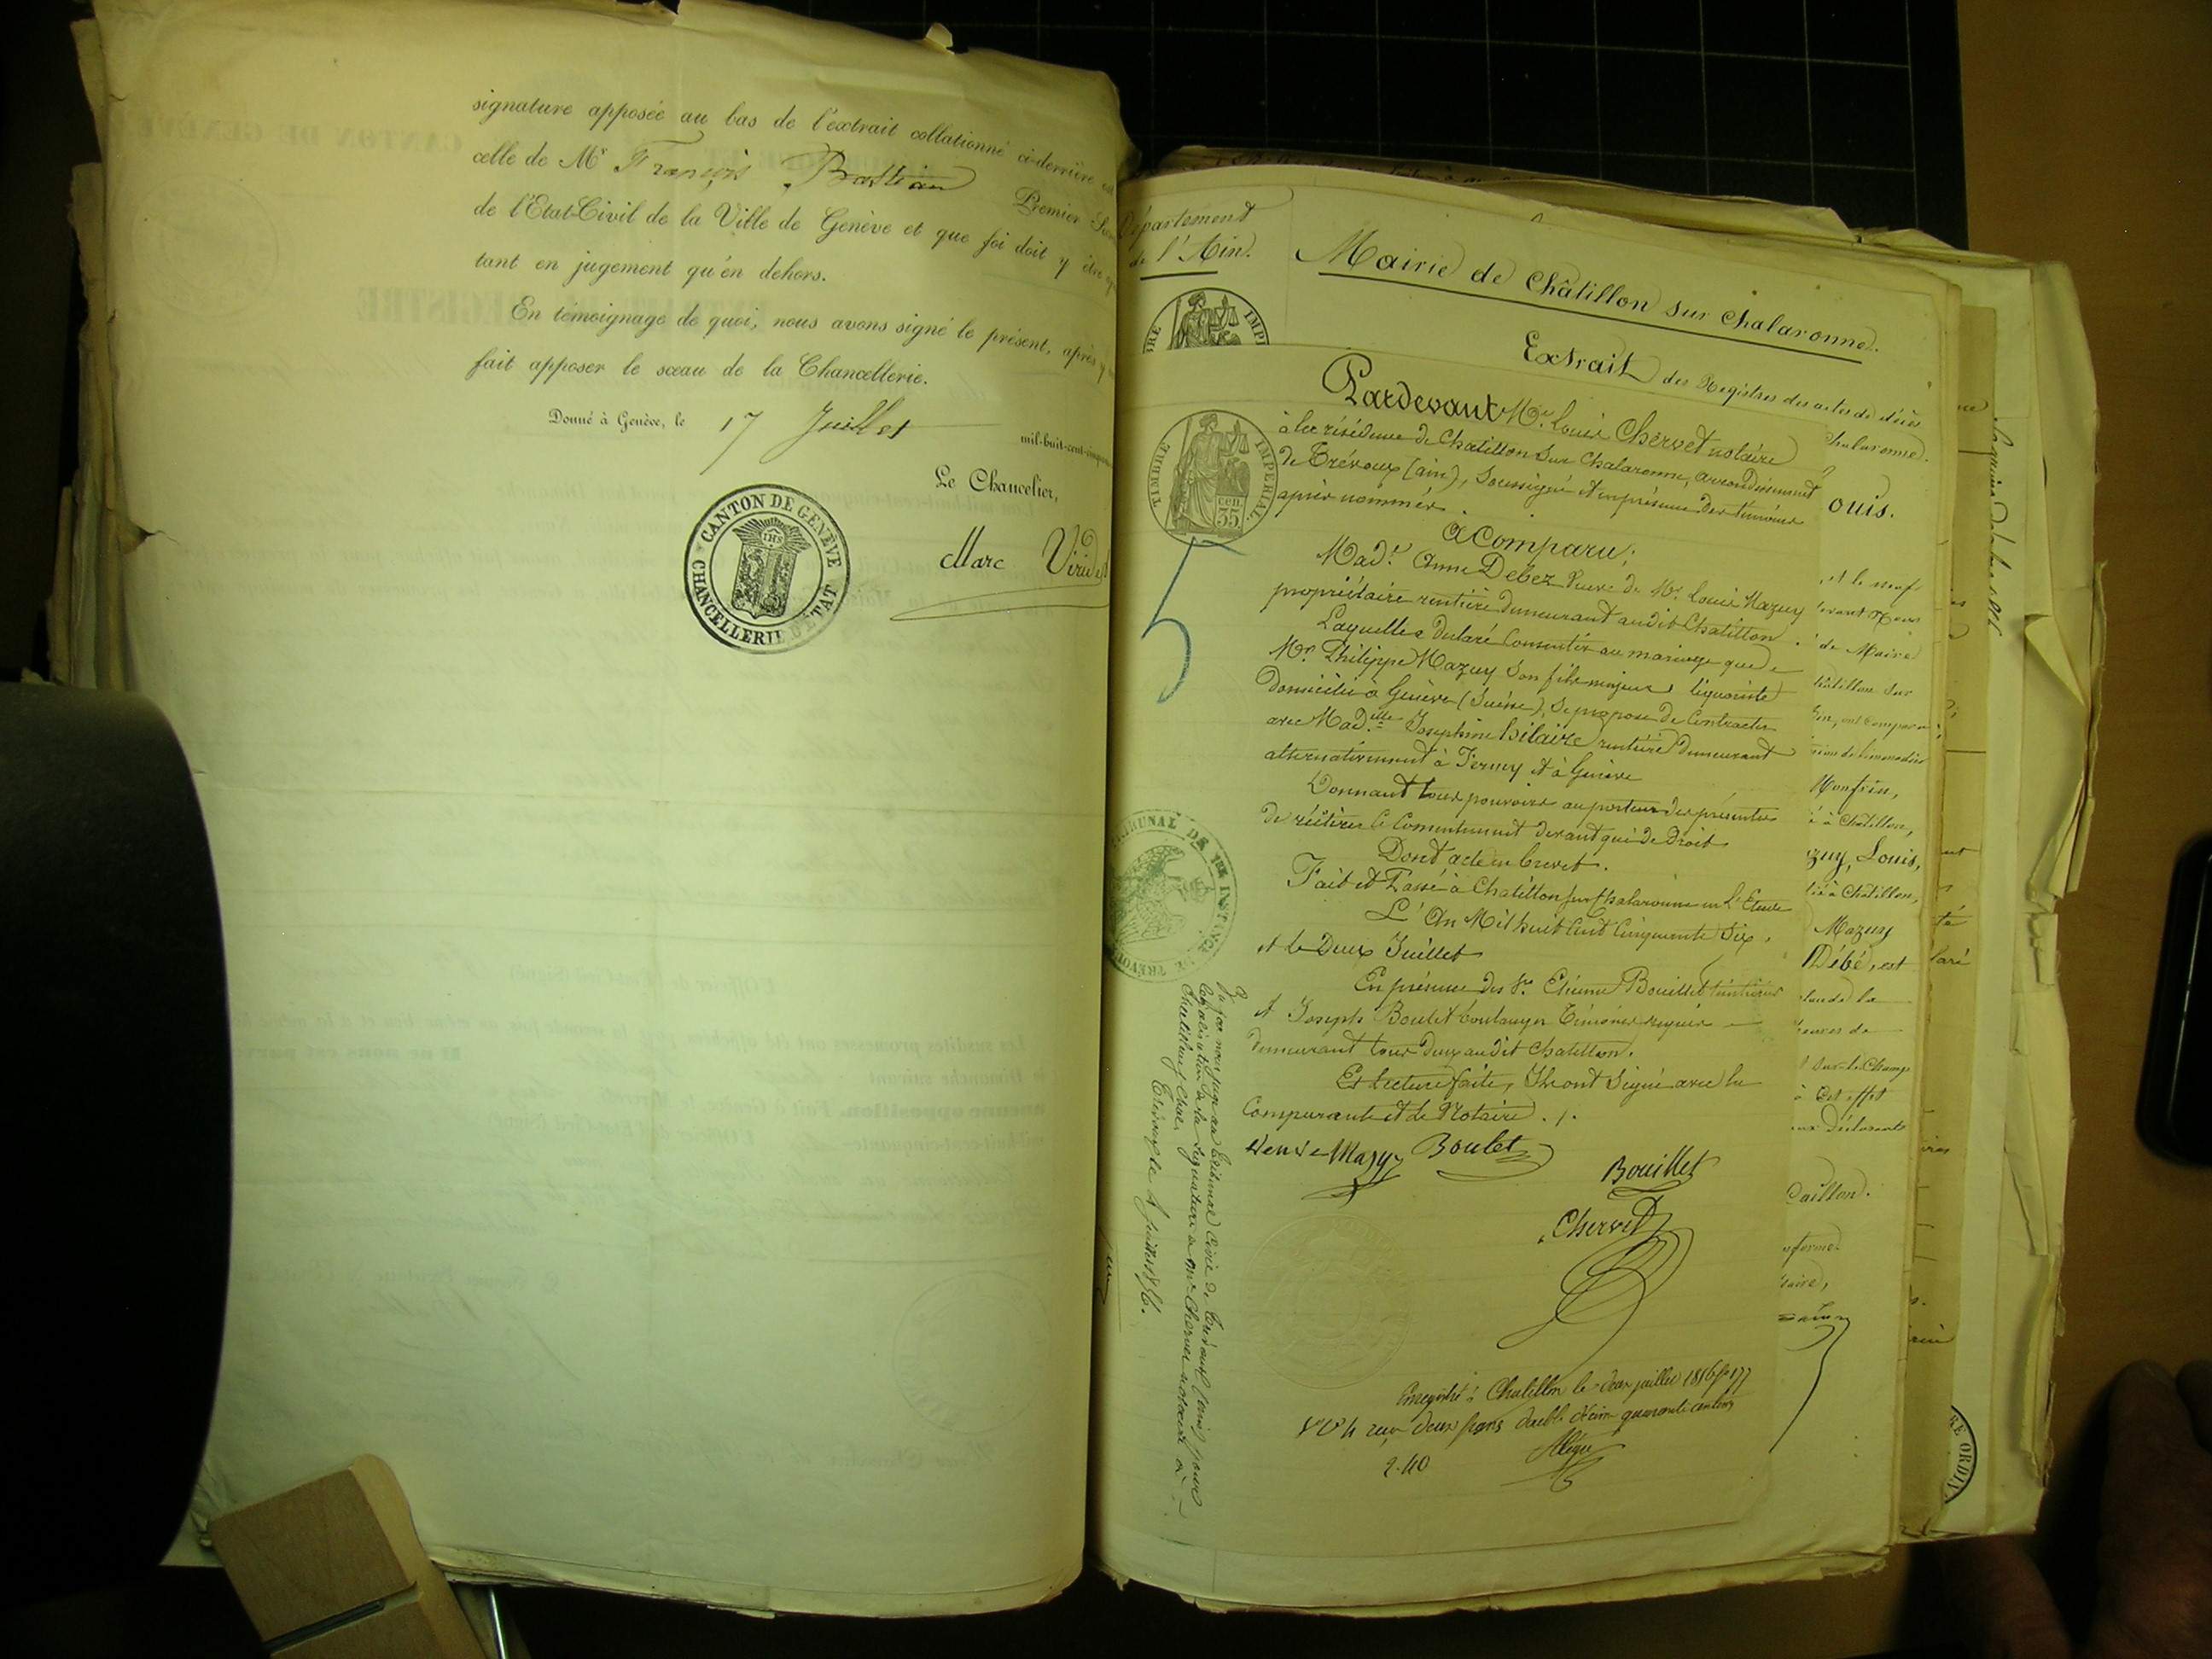 signature apposée au bas de l'extrait collationné ci-derrière est
celle de Mr François Bastian Premier Sec
de l'Etat-Civil de la Ville de Genève et que foi doit y être
tant en jugement qu'en dehors.
En témoignage de quoi, nous avons signé le présent, après y
fait apposer le sceau de la Chancellerie.
Donné à Genève, le 17 Juillet mil-huit-cent-cinquante
Le Chancelier,
Marc Viridet
CANTON DE GENEVE
CHANCELLERIE D'ETAT
Département
de l'Ain.
Mairie de Châtillon sur Chalaronne.
Extrait des Registres des actes de décès
Chalaronne.
TIMBRE IMPERIAL
cen. 35
5
Pardevant Me Louis Chervet notaire
à la résidence de Chatillon sur Chalaronne, arrondissement
de Trévoux (ain), Soussigné et en présence des témoins
après nommés.
A Comparu;
Made Anne Débez Veuve de Mr Louis Mazuy
propriétaire rentière demeurant audit Chatillon.
Laquelle a déclaré Consentir au mariage que
Mr Philippe Mazuy Son fils majeur, liquoriste
domicilié à Genève (Suisse), Se propose de Contracter
avec Madelle Josephine hilaire rentière demeurant
alternativement à Ferney et à Genève
Donnant tous pouvoirs au porteur des présentes
de réitérer Ce Consentement devant qui de Droit.
Dont acte en brevet.
Fait et Passé à Chatillon sur Chalaronne en l'Etude
L'An Mil huit Cent Cinquante Six,
et le Deux Juillet
En présence des Srs Etienne Bouillet
et Joseph Boulet boulanger témoins requis
demeurant tous deux audit Chatillon.
Et Lecture faite, Ils ont Signé avec la
Comparante et le Notaire ./.
veuve Mazuy Boulet
Bouillet
Chervet
Enregistré à Chatillon le deux juillet 1856 fo 177
Vo C 4 reçu deux francs double décime quarante centimes
2.40
TRIBUNAL DE 1ERE INSTANCE DE TREVOUX
Vu par nous juge au Tribunal Civil de Trévoux (ain) pour
légalisation de la Signature de Me Chervet notaire à
Chatillon s/ Char.
Trévoux le 4 juillet 1856.
ouis.
et le neuf
devant Nous
de Maire
hâtillon sur
in, ont comparu
Monfrin,
é à Châtillon,
zuy, Louis,
lié à Châtillon,
Mazuy
Débé, est
heures de
sur-le-Champ
à cet effet
Déclarants
Caillon.
nforme.
Maire,
RE ORDIN.